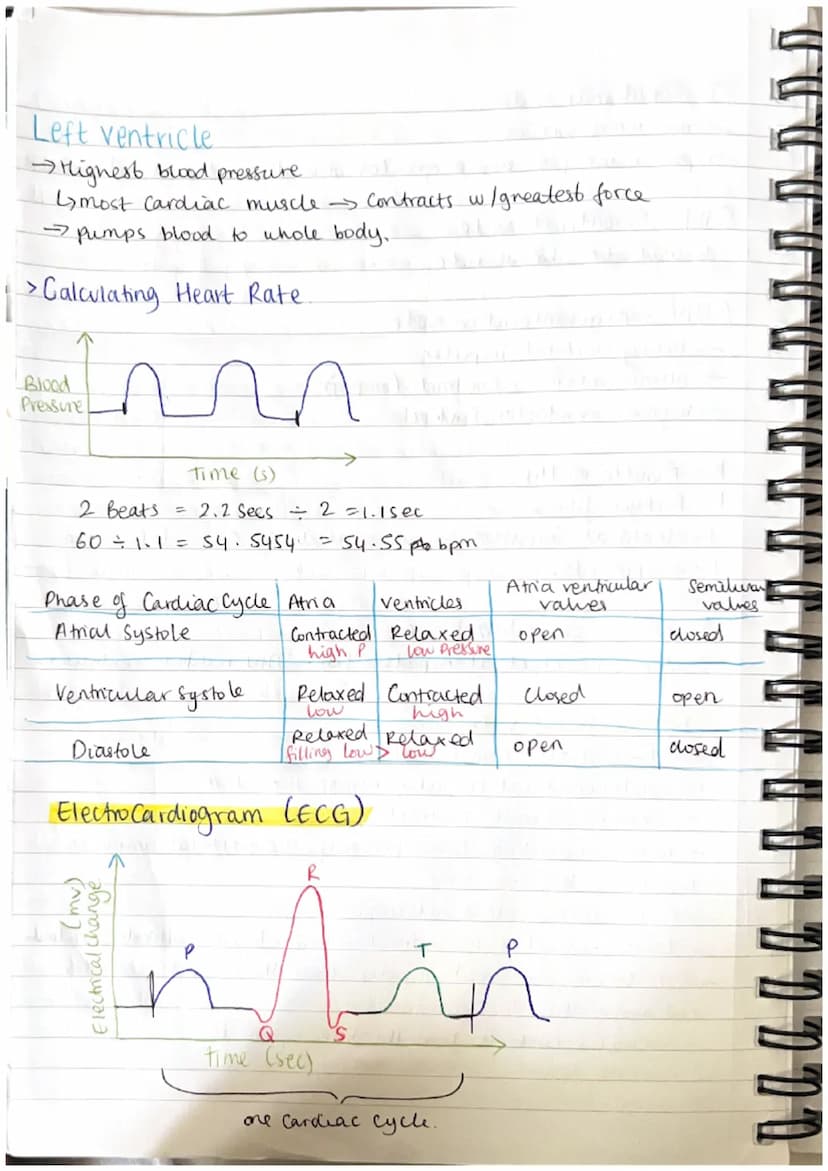 Left ventricle
→ Highest blood pressure
↳ most cardiac muscle → Contracts w/greatest force
→ pumps blood to whole body.
> Calculating Heart Rate
Blood
Pressure
Time (s)
2 Beats = 2.2 Secs ÷ 2 = 1.1 sec
60 ÷ 1.1 = 54.5454 = 54.55 bpm
Phase of Cardiac Cycle | Atria | Ventricles | Atria ventricular valves | Semilunar valves
Atrial Systole | Contracted high P | Relaxed low Pressure | open | closed
Ventricular Systole | Relaxed low | Contracted high | Closed | open
Diastole | Relaxed filling low > | Relaxed low | open | closed
ElectroCardiogram (ECG)
Electrical change (mv)
P
R
Q
S
T
P
Time (sec)
one cardiac cycle.